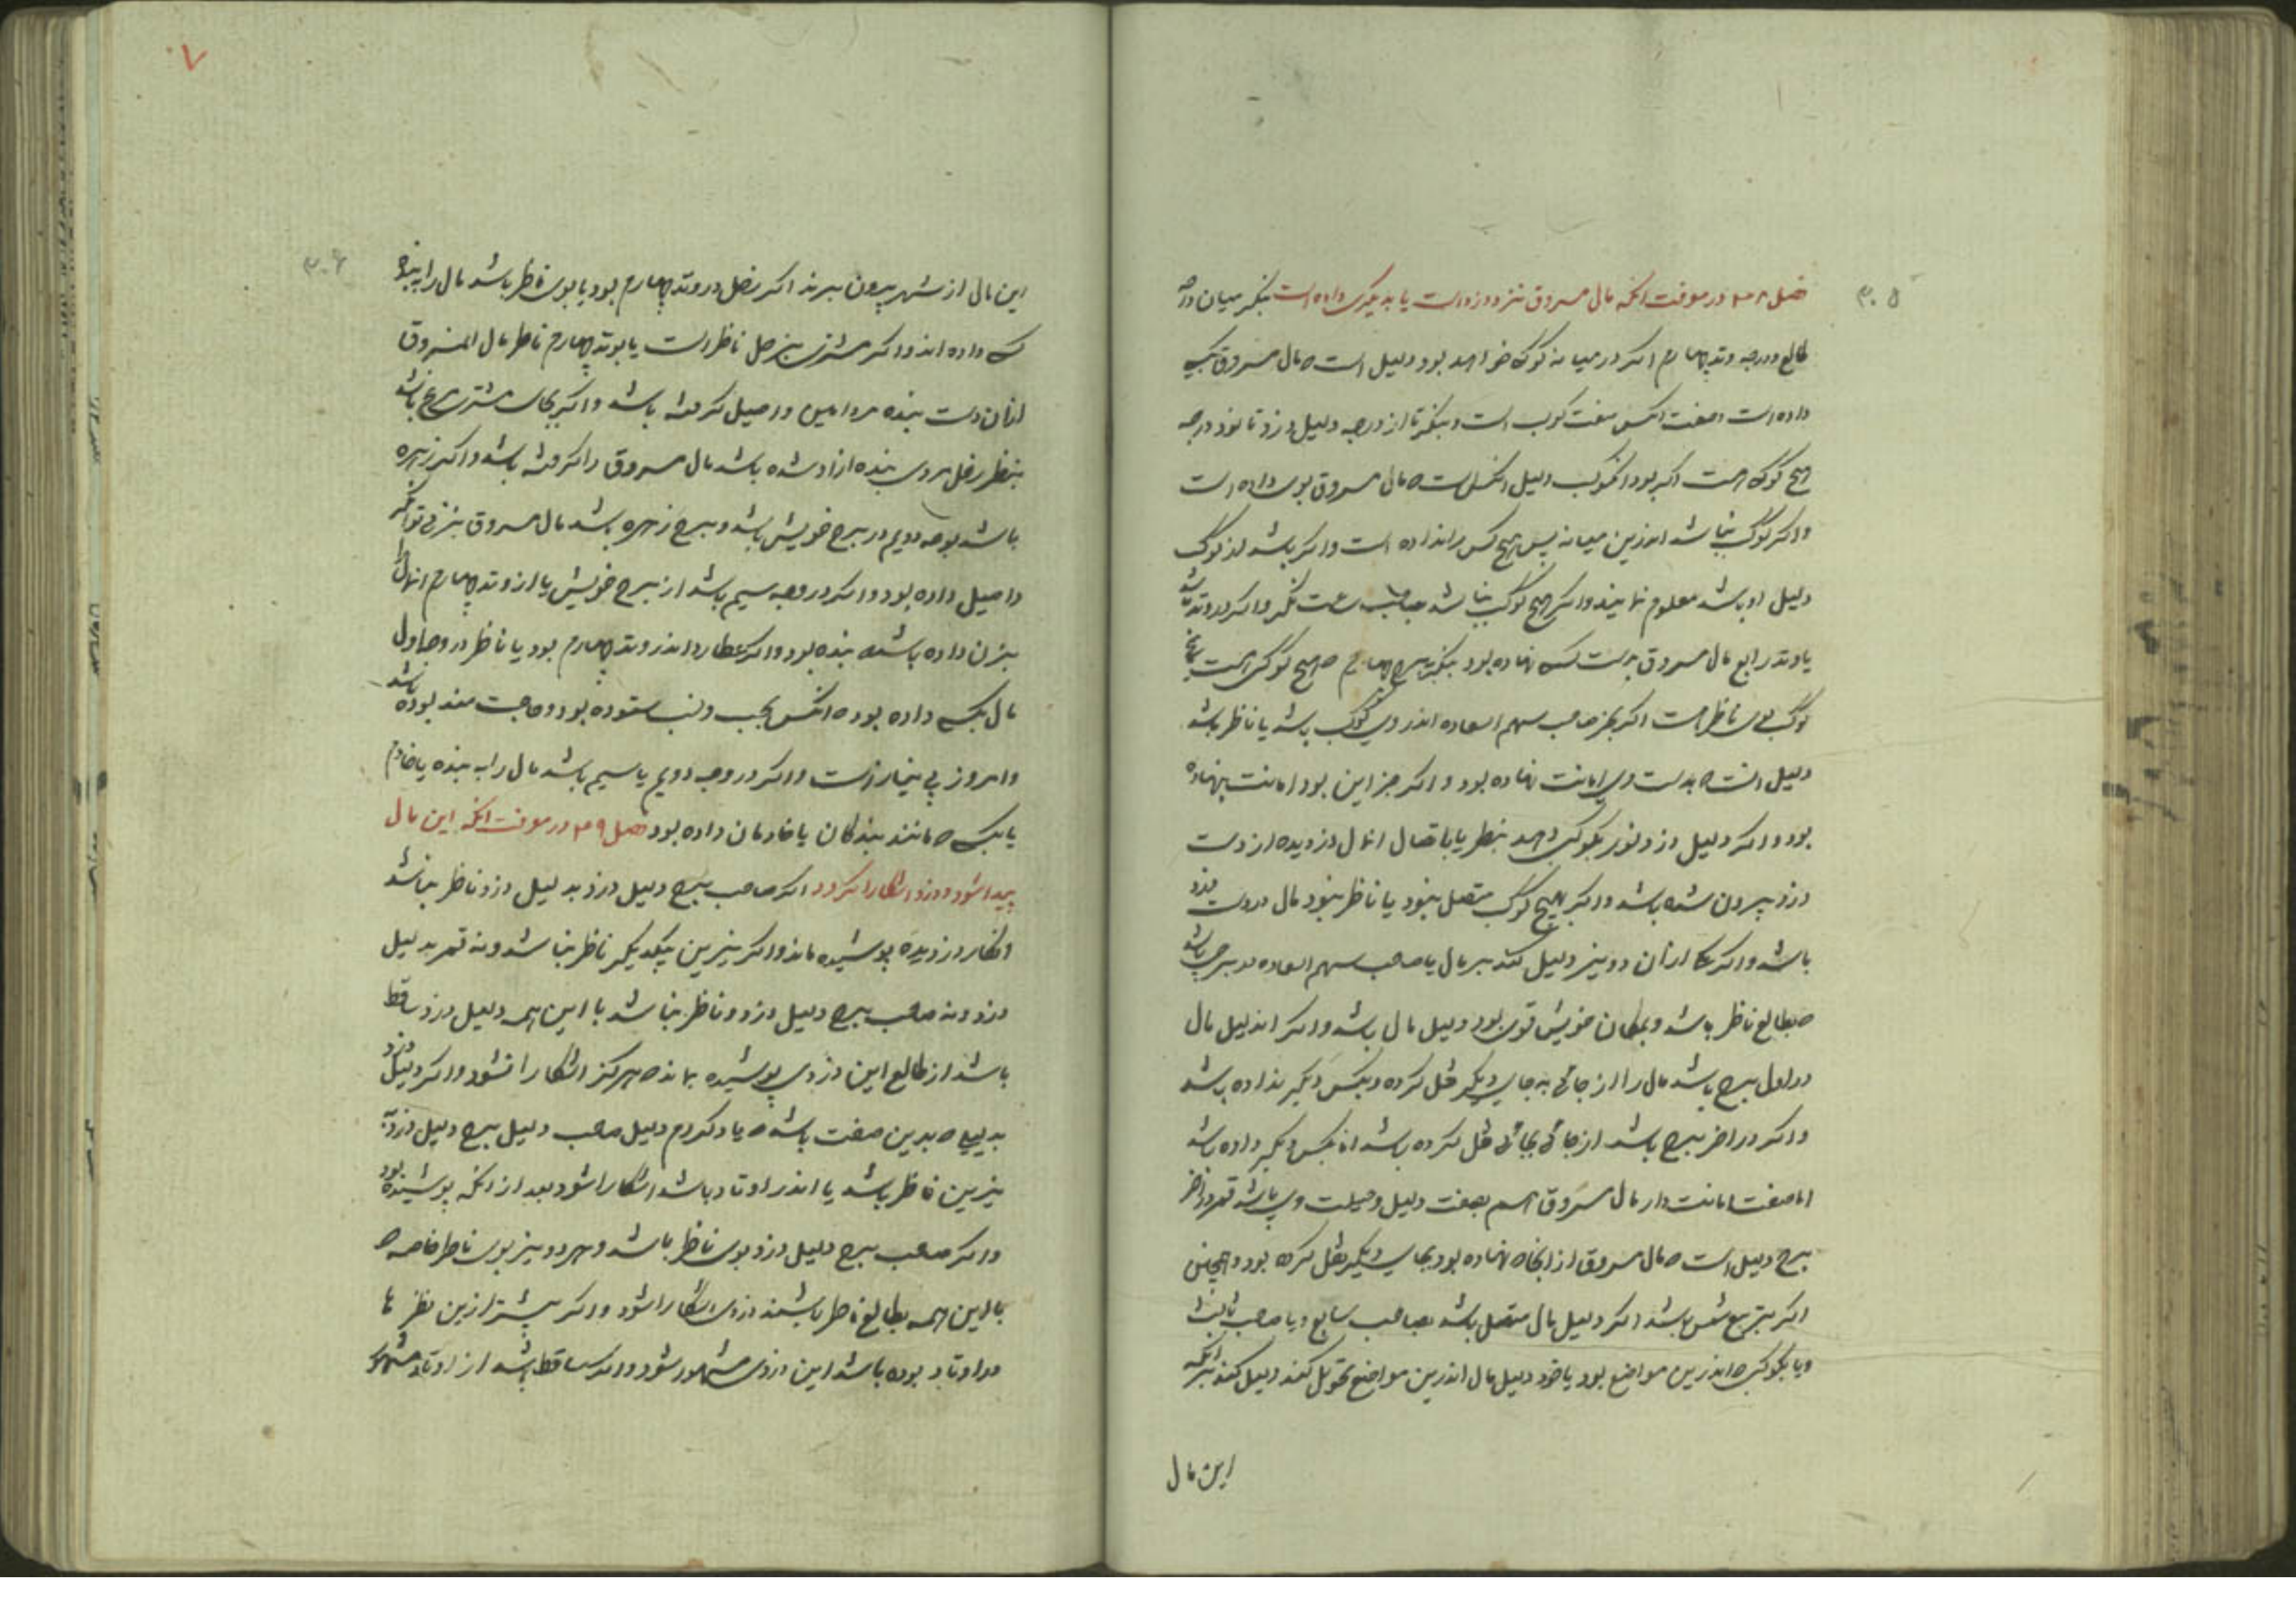 ۳۰۵
فصل ۳۸ در معرفت انکه مال مسروق نزد دزد است یا بدیگری داده است بنگر میان درجه
طالع و درجه وتد چهارم اگر در میانه کوکب خواهد بود دلیل است که مال مسروق بکسی
داده است و صفت انکس صفت کوکب است و بنگر تا از درجه دلیل دزد تا نود درجه
هیچ کوکب هست اگر بود انکوکب دلیل انکس است که مال مسروق بوی داده است
و اگر کوکب نباشد اندرین میانه پس هیچ کس را نداده است و اگر باشد از کوکب
دلیل او باشد معلوم نمایند و اگر هیچ کوکب نباشد بصاحب ساعت نگر و اگر در وتد باشد
یا وتد رابع مال مسروق بدست کسی نهاده بود بنگر ببرج چهارم که هیچ کوکبی هست
کوکب بوی ناظر هست اگر بجز صاحب سهم السعاده اندر وی کوکب باشد یا ناظر باشد
دلیل انست که بدست وی امانت نهاده بود و اگر جز این بود امانت ننهاده
بود و اگر دلیل دزد نور بکوکبی دهد بنظر یا باتصال ان مال دزدیده از دست
دزد بیرون شده باشد و اگر بهیچ کوکب متصل نبود یا ناظر نبود مال در دست دزد
باشد و اگر یکی از ان دو نیر دلیل کند بر مال یا صاحب سهم السعاده در برجی باشد
که بطالع ناظر باشد و بمکان خویش قوی بود دلیل مال باشد و اگر ان دلیل مال
در اول برج باشد مال را از جائی به جای دیگر نقل کرده و بکس دیگر نداده باشد
و اگر در اخر برج باشد از جائی بجائی نقل کرده باشد اما بکس دیگر داده باشد
اما صفت امانت دار مال مسروق هم بصفت دلیل و حیلت وی باشد قمر در اخر
برج دلیل است که مال مسروق از انجا که نهاده بود بجای دیگر نقل کرده بود و همچنین
اگر بتربیع شمس باشد اگر دلیل مال متصل باشد بصاحب سابع و یا صاحب ثالث
و یا بکوکبی که اندرین مواضع بود یا خود دلیل مال اندرین مواضع تحویل کند دلیل کند بر انکه
این مال
۷
۳۰۶
این مال از شهر بیرون برند اگر زحل در وتد چهارم بود یا بوی ناظر باشد مال را به بنده
کسی داده اند و اگر مشتری نیز بزحل ناظر است یا بوتد چهارم ناظر مال المسروق
ازان دست بنده مردامین و اصیل گرفته باشد و اگر بجای مشتری مریخ باشد
بنظر زحل مردی بنده ازاد شده باشد مال مسروق را گرفته باشد و اگر زهره
باشد بوجه دویم در برج خویش باشد و برج زهره باشد مال مسروق بزنی توانگر
و اصیل داده بود و اگر در وجه سیم باشد از برج خویش یا از وتد چهارم ان مال را
بزن داده باشد که بنده بود و اگر عطارد اندر وتد چهارم بود یا ناظر در وجه اول
مال بکسی داده بود که انکس بحسب و نسب ستوده بود و حاجت مند بوده باشد
و امروز بی نیاز است و اگر در وجه دویم یا سیم باشد مال را به بنده یا خادم
یا بکسی که مانند بندگان یا خادمان داده بود فصل ۳۹ در معرفت انکه این مال
پیدا شود و دزد اشکارا گردد اگر صاحب برج دلیل دزد بدلیل دزد ناظر نباشد
انکار دزدیده پوشیده ماند و اگر نیرین بیکدیگر ناظر نباشد و نه قمر بدلیل
دزد و نه صاحب برج دلیل دزد و ناظر نباشد با این همه دلیل دزد ساقط
باشد از طالع این دزدی پوشیده بماند که هرگز اشکارا نشود و اگر دلیل دزد
به که بدین صفت باشد که یاد کردم دلیل صاحب دلیل برج دلیل دزد
نیرین ناظر باشد یا اندر اوتاد باشد اشکارا شود بعد از انکه پوشیده بود
و اگر صاحب برج دلیل دزد بوی ناظر باشد و هر دو نیر بوی ناظر خاصه که
با این همه بطالع ناظر باشند دزدی اشکارا شود و اگر بیشتر ازین نظر ها
در اوتاد بوده باشد این دزدی مشهور شود و اگر ساقط باشد از اوتاد مشهور